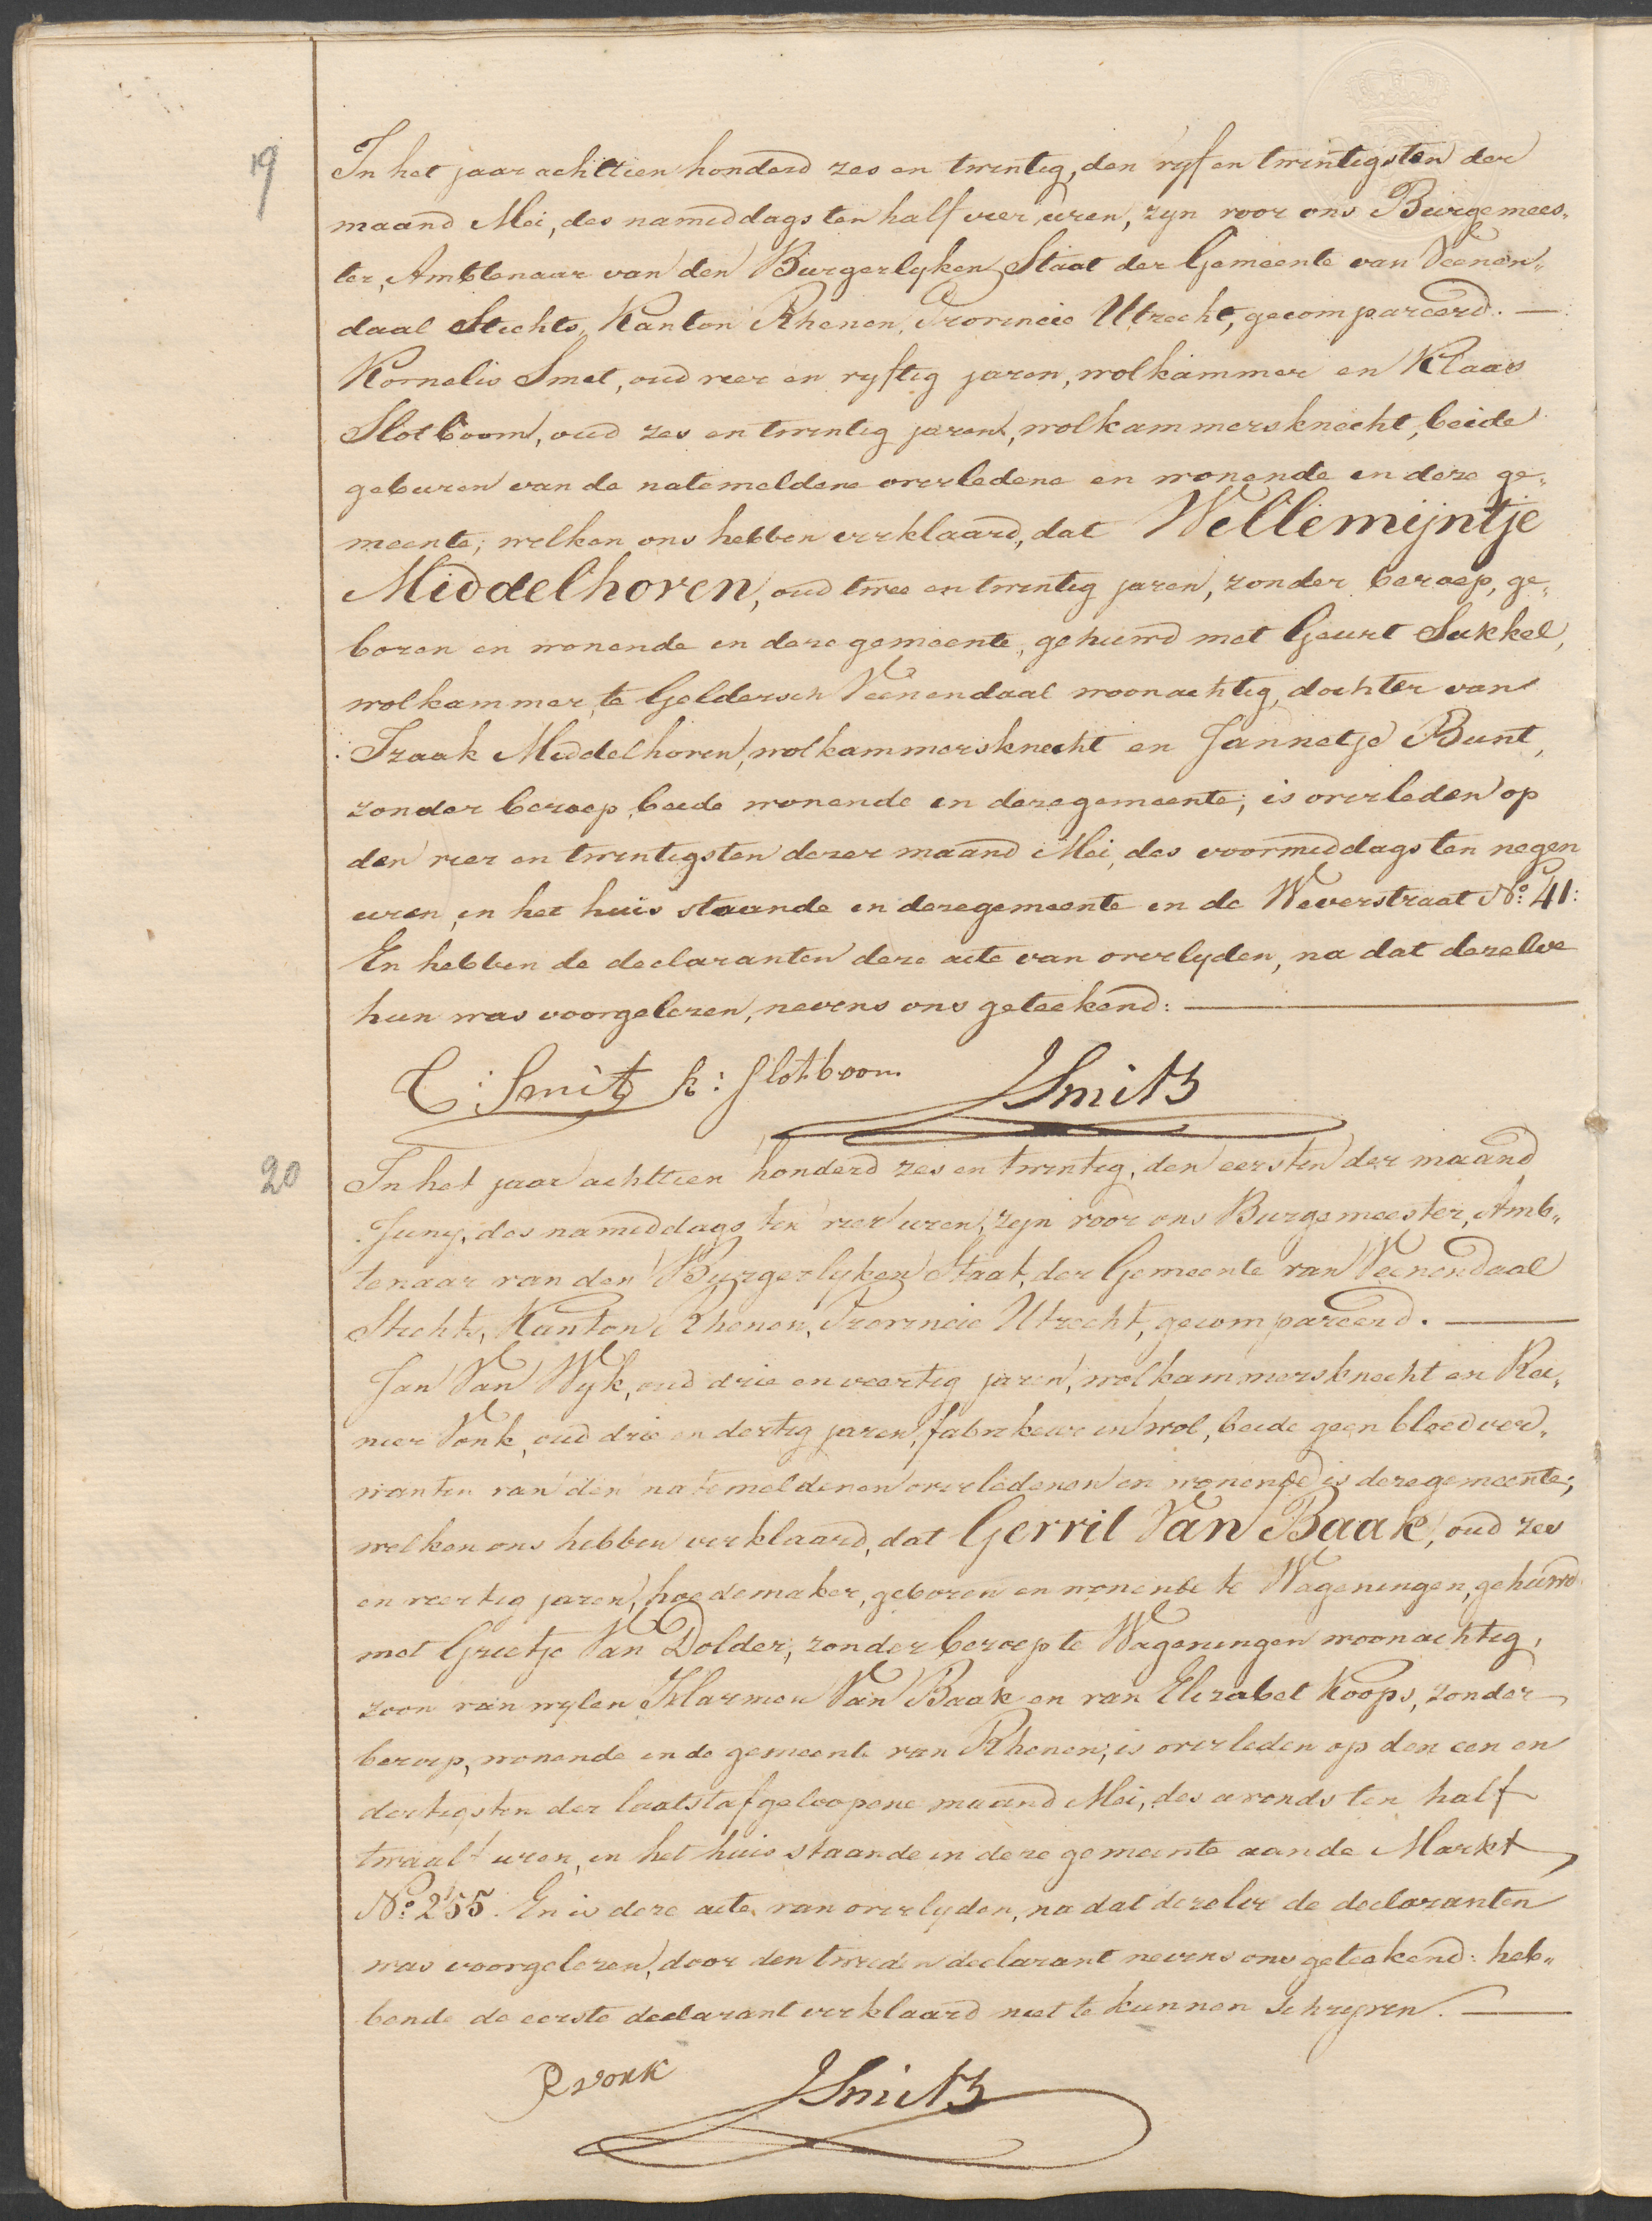 19
In het jaar achttien honderd zes en twintig, den vyf en twintigsten der
maand Mei, des namiddags ten half vier uren, zyn voor ons Burgemees„
ter, Ambtenaar van den Burgerlyken Staat der Gemeente van Veenen„
daal Stichts, Kanton Rhenen, Provincie Utrecht, gecompareerd. —
Kornelis Smit, oud vier en vyftig jaren, wolkammer en Klaas
Slotboom, oud zes en twintig jaren, wolkammersknecht, beide
geburen van de natemeldene overledene en wonende in deze ge„
meente; welken ons hebben verklaard, dat Willemijntje
Middelhoven, oud twee en twintig jaren, zonder beroep, ge„
boren en wonende in deze gemeente, gehuwd met Geurt Sukkel,
wolkammer, te Geldersch Veenendaal woonachtig, dochter van
Izaak Middelhoven, wolkammersknecht en Jannetje Bunt,
zonder beroep, beide wonende in deze gemeente; is overleden op
den vier en twintigsten dezer maand Mei, des voormiddags ten negen
uren, in het huis staande in deze gemeente in de Weverstraat No: 41:
En hebben de declaranten deze acte van overlyden, na dat dezelve
hun was voorgelezen, nevens ons geteekend: —
C: Smit k: Slotboom JSmits
20
In het jaar achttien honderd zes en twintig, den eersten der maand
Juny, des namiddags ten vier uren, zyn voor ons Burgemeester, Amb„
tenaar van den Burgerlyken Staat, der Gemeente van Veenendaal
Stichts, Kanton Rhenen, Provincie Utrecht, gecompareerd. —
Jan Van Wyk, oud drie en veertig jaren, wolkammersknecht en Rei„
nier Vonk, oud drie en dertig jaren, fabrikeur in wol, beide geen bloedver„
wanten van den natemeldenen overledenen en wonende is deze gemeente;
welken ons hebben verklaard, dat Gerrit Van Baak, oud zes
en veertig jaren, hoedemaker, geboren en wonende te Wageningen, gehuwd
met Grietje Van Dolder, zonder beroep te Wageningen woonachtig,
zoon van wylen Harmen Van Baak en van Elizabet Koops, zonder
beroep, wonende in de gemeente van Rhenen; is overleden op den een en
dertigsten der laatstafgeloopene maand Mei, des avonds ten half
twaalf uren, in het huis staande in deze gemeente aan de Markt
No: 255. En is deze acte van overlyden, na dat dezelve de declaranten
was voorgelezen, door den tweeden declarant nevens ons geteekend: heb„
bende de eerste declarant verklaard niet te kunnen schryven. —
R vonk JSmits